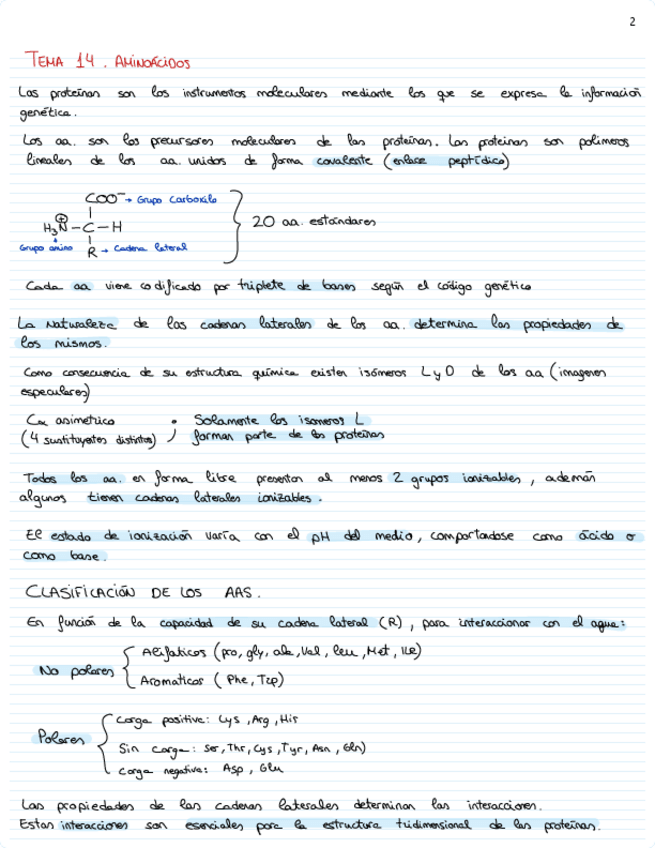 2
TEMA 14. AMINOÁCIDOS
Las proteínas son los instrumentos moleculares mediante los que se expresa la información
genética.
Los aa. son los precursores moleculares de las proteínas. Las proteínas son polímeros
lineales de los aa. unidos de forma covalente (enlace peptídico)
COO⁻ → Grupo Carboxilo
H₃N⊕ – C – H
20 aa. estándares
Grupo amino
R → Cadena lateral
Cada aa viene codificado por triplete de bases según el código genético
La Naturaleza de las cadenas laterales de los aa. determina las propiedades de
los mismos.
Como consecuencia de su estructura química existen isómeros L y D de los aa (imagenes
especulares)
Cα asimétrico ; Solamente los isomeros L
(4 sustituyentes distintos) forman parte de las proteínas
Todos los aa. en forma libre presentan al menos 2 grupos ionizables, además
algunos tienen cadenas laterales ionizables.
El estado de ionización varía con el pH del medio, comportandose como ácido o
como base.
CLASIFICACIÓN DE LOS AAS.
En función de la capacidad de su cadena lateral (R), para interaccionar con el agua:
Alifaticos (pro, gly, ala, Val, leu, Met, Ile)
No polares
Aromaticos (Phe, Trp)
Carga positiva: Lys, Arg, His
Polares
Sin carga: Ser, Thr, Cys, Tyr, Asn, Gln)
Carga negativa: Asp, Glu
Las propiedades de las cadenas laterales determinan las interacciones.
Estas interacciones son esenciales para la estructura tridimensional de las proteínas.